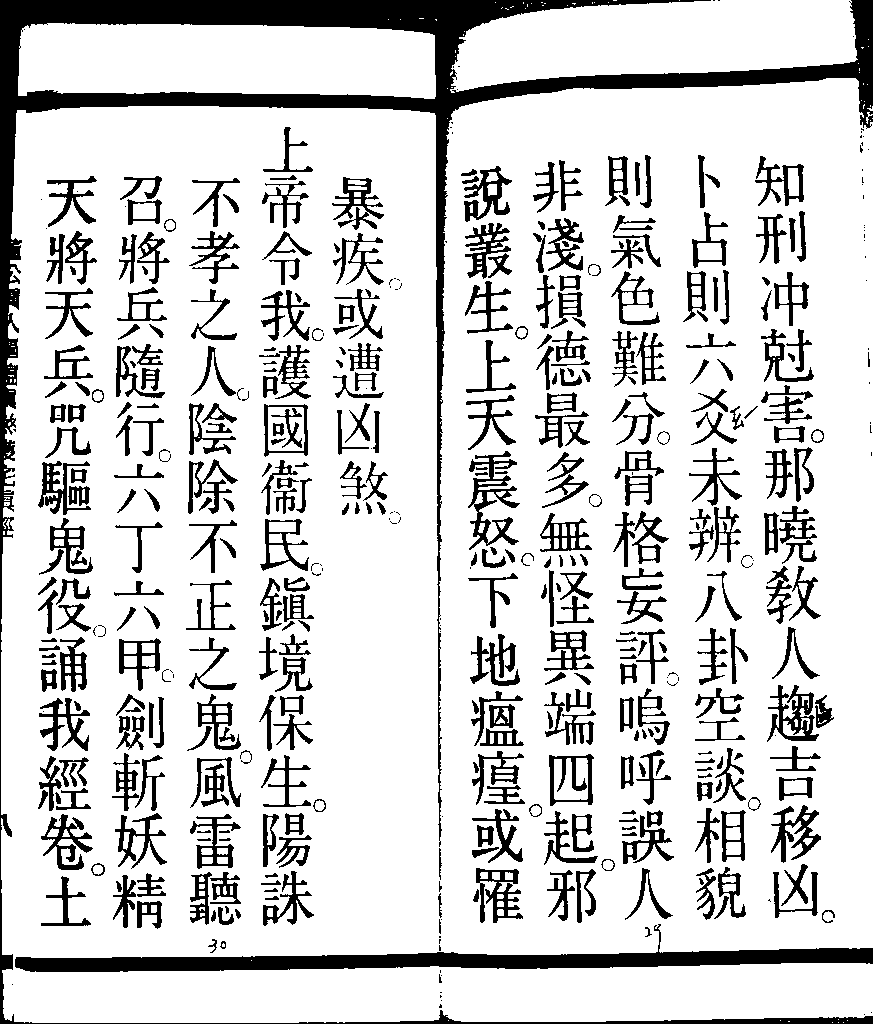 知刑冲尅害。那曉教人趨吉移凶。
卜占則六爻未辨。八卦空談。相貌
則氣色難分。骨格妄評。嗚呼誤人
非淺。損德最多。無怪異端四起。邪
說叢生。上天震怒。下地瘟㾮。或罹
29
暴疾。或遭凶煞。
上帝令我。護國衞民。鎭境保生。陽誅
不孝之人。陰除不正之鬼。風雷聽
召。將兵隨行。六丁六甲。劍斬妖精
天將天兵。咒驅鬼役。誦我經卷。土
30
八